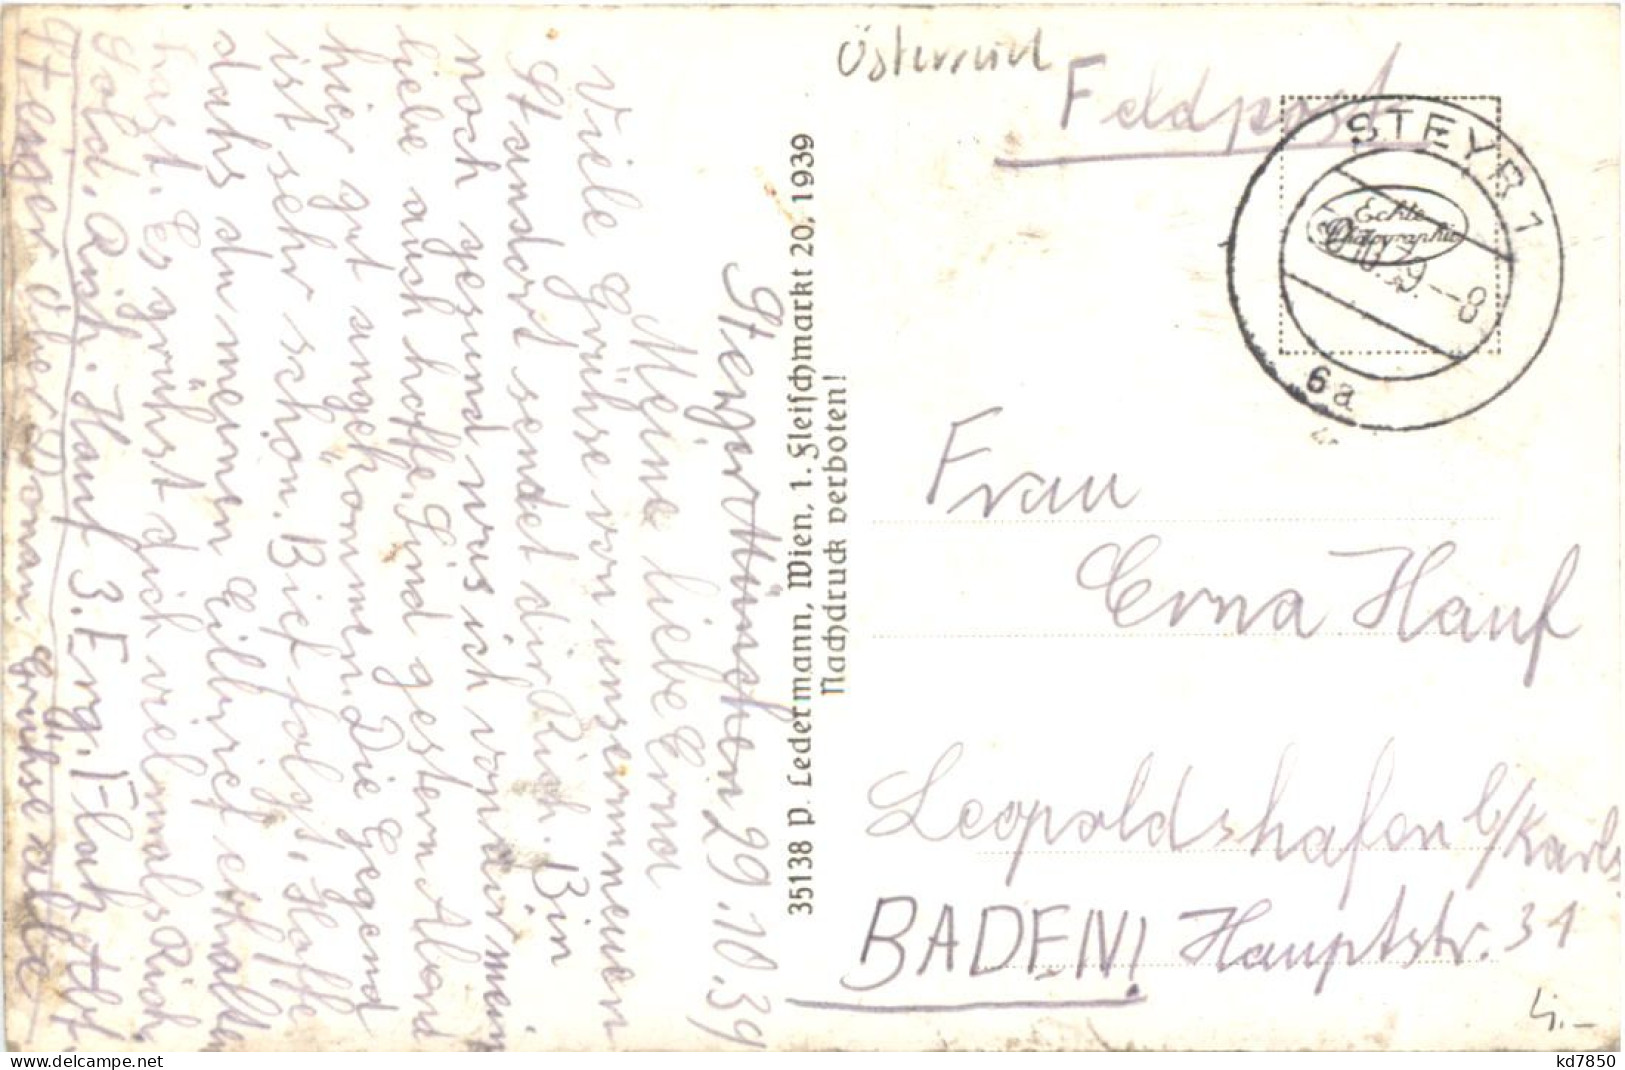 Steyer Münichen 29.10.39
Meine liebe Erna
Viele Grühse von unserm neuen
Standort sendet dir Rich. Bin
noch gesund was ich von dir mein
liebe auch hoffe. Sind gestern Abend
hier gut angekommen. Die Gegend
ist sehr schön. Brief folgt, Hoffe
dahs du meinen Eilbrief erhalten
hast. Es grühst dich vielmals Rich.
Sold. Rich. Hauf 3. Erg. Flak Abt.
Steiger über Donau.
Grühse alle
35138 P. Ledermann, Wien, 1. Fleischmarkt 20, 1939
Nachdruck verboten!
Österreich
Feldpost
STEYR 1
Echte
Photographie
10.39.--8
6a
Frau
Erna Hauf
Leopoldshafen b/Karls
BADEN! Hauptstr. 31
4.-
www.delcampe.net
kd7850